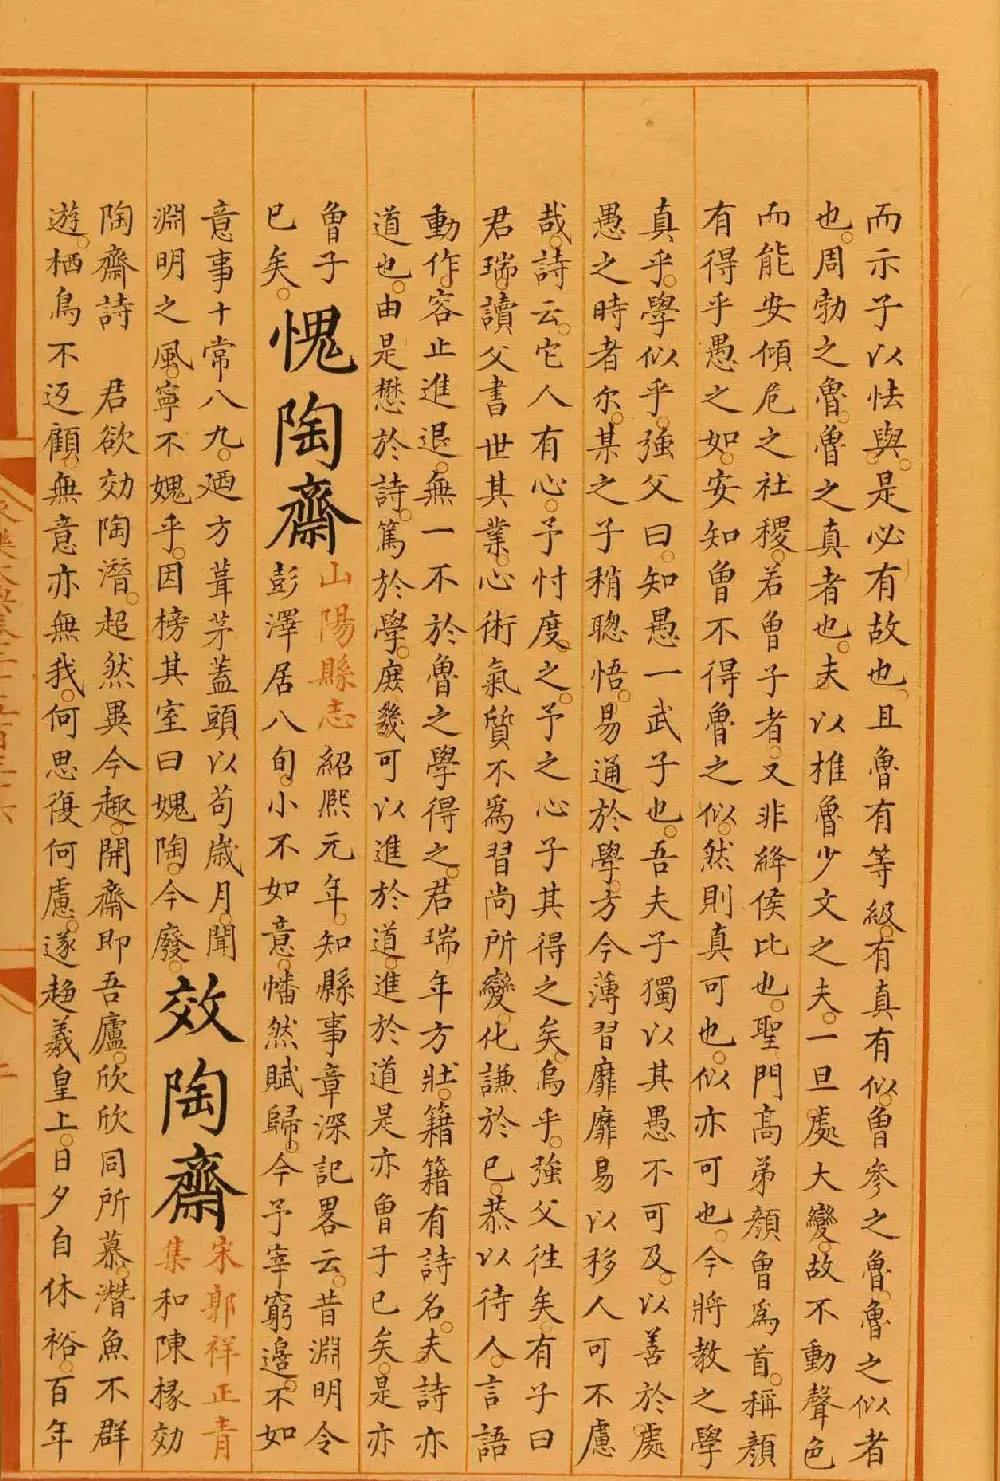 而示子以怯與是必有故也且魯有等級有真有似曾參之魯魯之似者
也周勃之魯魯之真者也夫以椎魯少文之夫一旦處大變故不動聲色
而能安傾危之社稷若魯子者又非絳侯比也聖門高弟顏曾為首稱顏
有得乎愚之如安知曾不得魯之似然則真可也似亦可也今將教之學
真乎學似乎強父曰知愚一武子也吾夫子獨以其愚不可及以善於處
愚之時者尔某之子稍聰悟易通於學方今薄習靡靡易以移人可不慮
哉詩云它人有心予忖度之予之心子其得之矣烏乎強父徃矣有子曰
君瑞讀父書世其業心術氣質不為習尚所變化謙於已恭以待人言語
動作容止進退無一不於魯之學得之君瑞年方壯籍籍有詩名夫詩亦
道也由是懋於詩篤於學庶幾可以進於道進於道是亦曾子已矣是亦
魯子
已矣
愧陶齋
山陽縣志紹熈元年知縣事章深記畧云昔淵明令
彭澤居八旬小不如意幡然賦歸今予宰窮邉不如
意事十常八九廼方葺茅蓋頭以苟歳月聞
淵明之風寧不媿乎因榜其室曰媿陶今廢
效陶齋
宋郭祥正青
集和陳掾効
陶齋詩 君欲効陶潛超然異今趣開齋即吾廬欣欣同所慕潛魚不群
遊栖鳥不迈顧無意亦無我何思復何慮遂趋羲皇上日夕自休裕百年